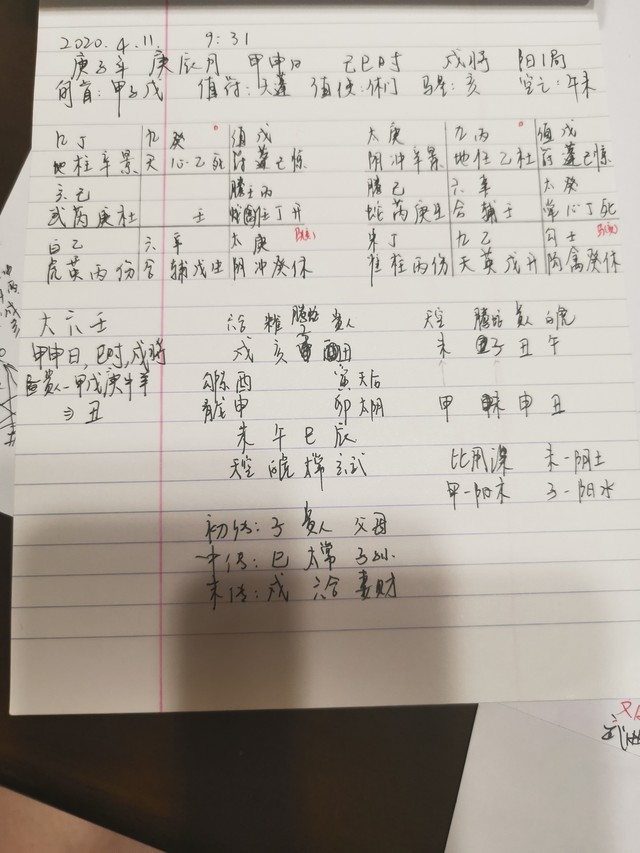 2020.4.11. 9:31
庚子年 庚辰月 甲申日 己巳时 戌将 阳1局
旬首:甲子戊 值符:天蓬 值使:休门 马星:亥 空亡:午未
九丁 九癸 值戊 太庚 九丙 值戊
地柱辛景 天心乙死 符蓬己惊 阴冲辛景 地任乙杜 符蓬己惊
玄己 腾壬丙 腾己 六辛 太癸
武芮庚杜 壬 任丁开 蛇芮庚生 合辅壬 常心丁死
白乙 六辛 太庚 朱丁 九乙 勾壬
虎英丙伤 合辅戊生 阴冲癸休 雀柱丙伤 天英戊开 陈禽癸休
大六壬 六合 雀 腾蛇 贵人 天空 腾蛇 贵人 白虎
甲申日,巳时,戌将 戌 亥 子 丑 未 子 丑 午
贵人-甲戊庚牛羊 勾陈酉 寅天后
⇒丑 青龙申 卯太阴 甲 未 申 丑
未 午 巳 辰
天空 白虎 太常 玄武 比用课 未-阴土
甲-阳木 子-阳水
初传:子 贵人 父母
中传:巳 太常 子孙
末传:戌 六合 妻财